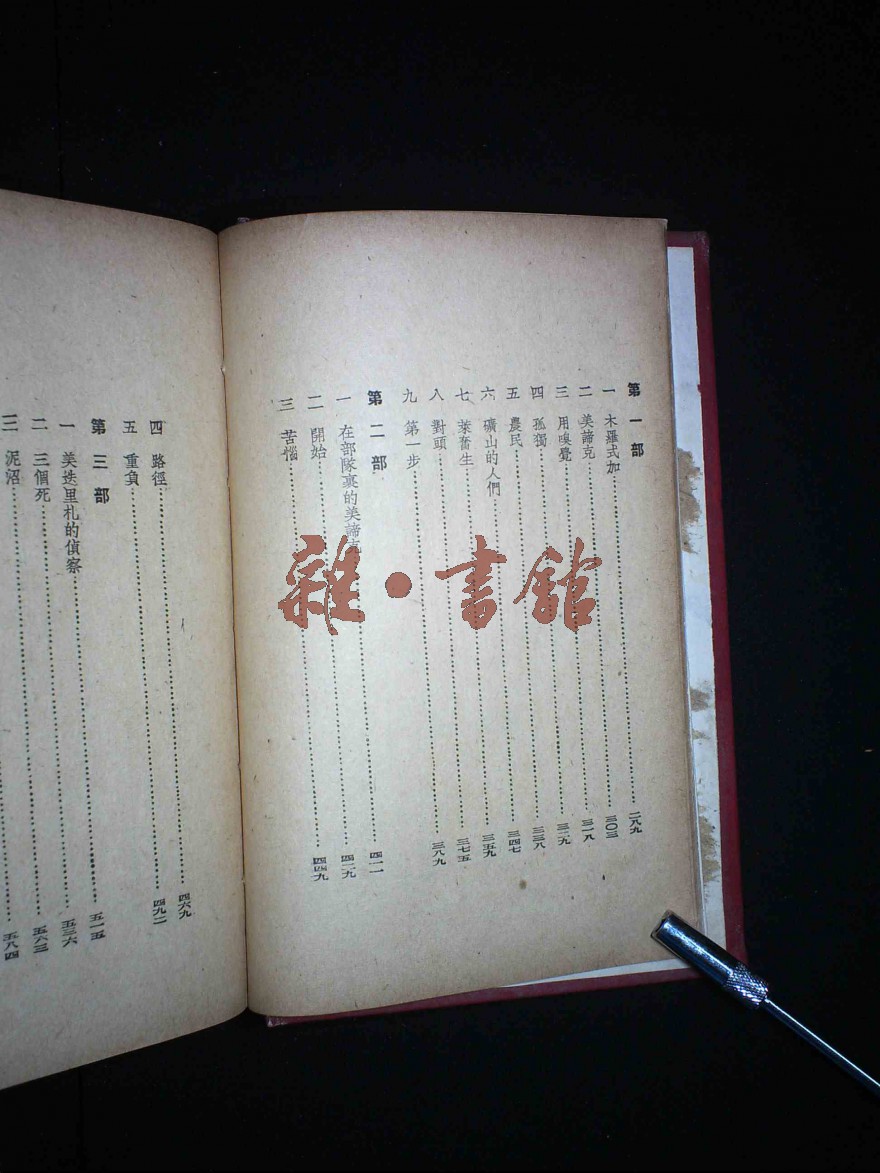 第一部
一 木羅式加……二八九
二 美諦克……三〇三
三 用嗅覺……三一八
四 孤獨……三二九
五 農民……三三八
六 礦山的人們……三四七
七 萊奮生……三五九
八 對頭……三七五
九 第一步……三八九
第二部
一 在部隊裏的美諦克……四一一
二 開始……四二九
三 苦惱……四四九
四 路徑……四六九
五 重負……四九二
第三部
一 美迭里札的偵察……五一五
二 三個死……五三六
三 泥沼……五六三
五八四
雜·書館